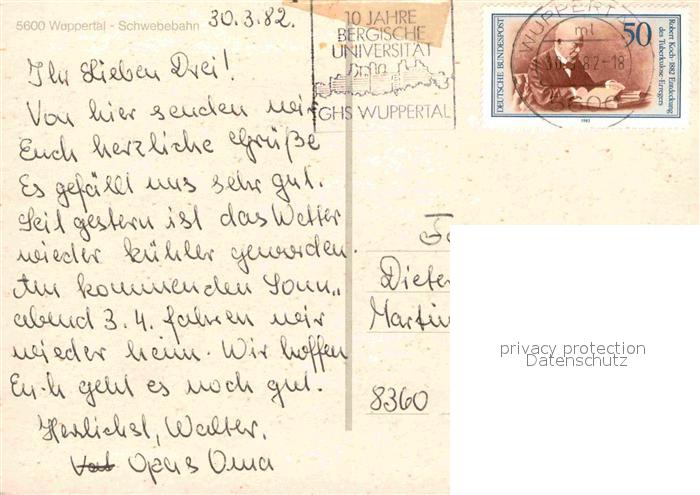 5600 Wuppertal - Schwebebahn
30.3.82.
Ihr Lieben Drei!
Von hier senden wir
Euch herzliche Grüße
Es gefällt uns sehr gut.
Seit gestern ist das Wetter
wieder kühler geworden.
Am kommenden Sonn-
abend 3.4. fahren wir
wieder heim. Wir hoffen
Euch geht es noch gut.
Herzlichst, Walter,
Opa u Oma
10 JAHRE
BERGISCHE
UNIVERSITÄT
GHS WUPPERTAL
DEUTSCHE BUNDESPOST
50
Robert Koch · 1882 Entdeckung
des Tuberkulose-Erregers
1982
WUPPERT
mt
82-18
5600
Dieter
Martin
8360
privacy protection
Datenschutz